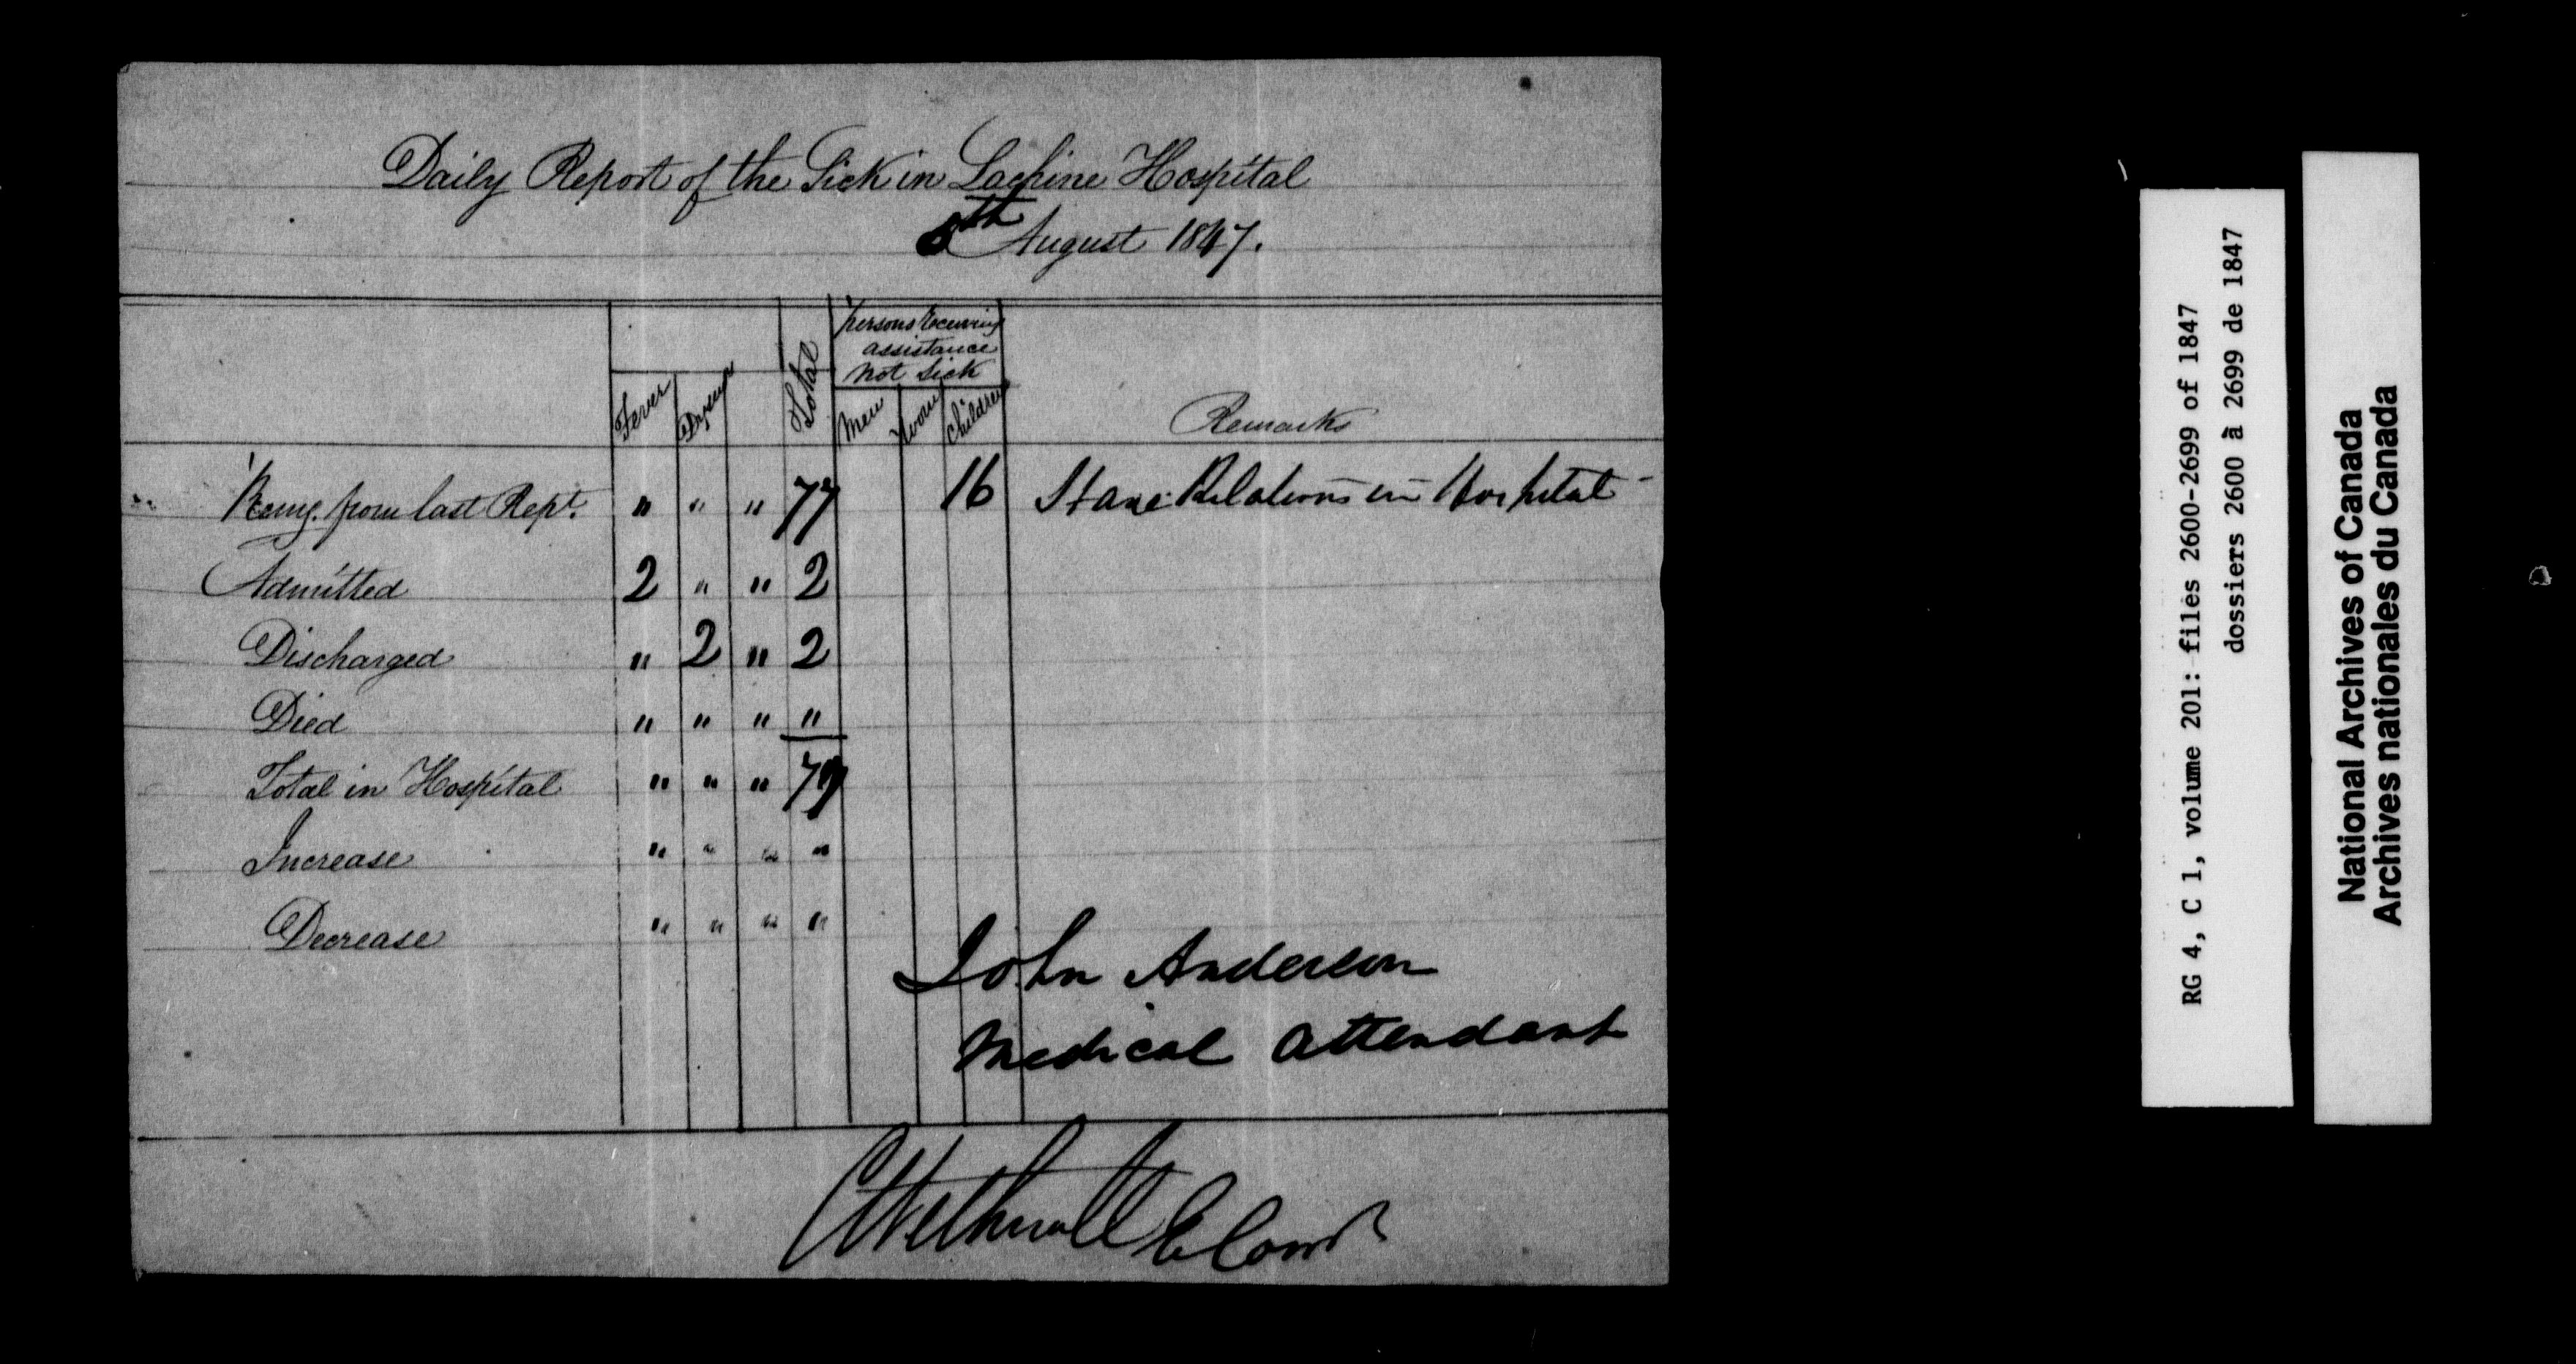 Daily Report of the Sick in Lachine Hospital
8th August 1847.
Persons receiving
assistance
not sick
Fever Dysen Total Men Wom Children Remarks
Remg. from last Rept. " " " 77 16 Have Relations in Hospital -
Admitted 2 " " 2
Discharged " 2 " 2
Died " " " "
Total in Hospital " " " 77
Increase " " " "
Decrease " " " "
John Anderson
Medical Attendant
RG 4, C 1, volume 201: files 2600-2699 of 1847
dossiers 2600 à 2699 de 1847
National Archives of Canada
Archives nationales du Canada